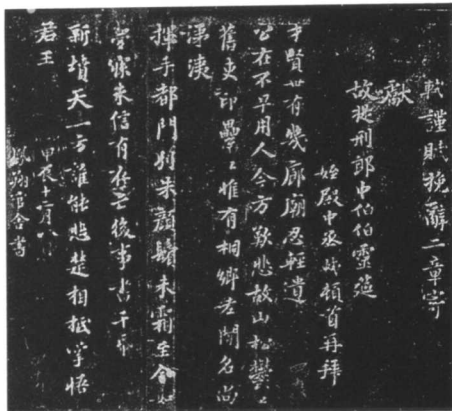 軾謹賦挽辭二章寄
獻
故提刑郎中伯伯靈筵
姪殿中丞軾頓首再拜
才賢世有幾廊廟忍輕遺
公在不早用人今方歎悲故山松鬱〻
舊吏印纍〻惟有桐鄉老聞名尚
涕洟
揮手都門別朱顏鬢未霜至今如
夢寐未信有存亡後事書千紙
新墳天一方誰能悲楚相抵掌悟
君王
甲辰十二月八日
鳳翔官舍書